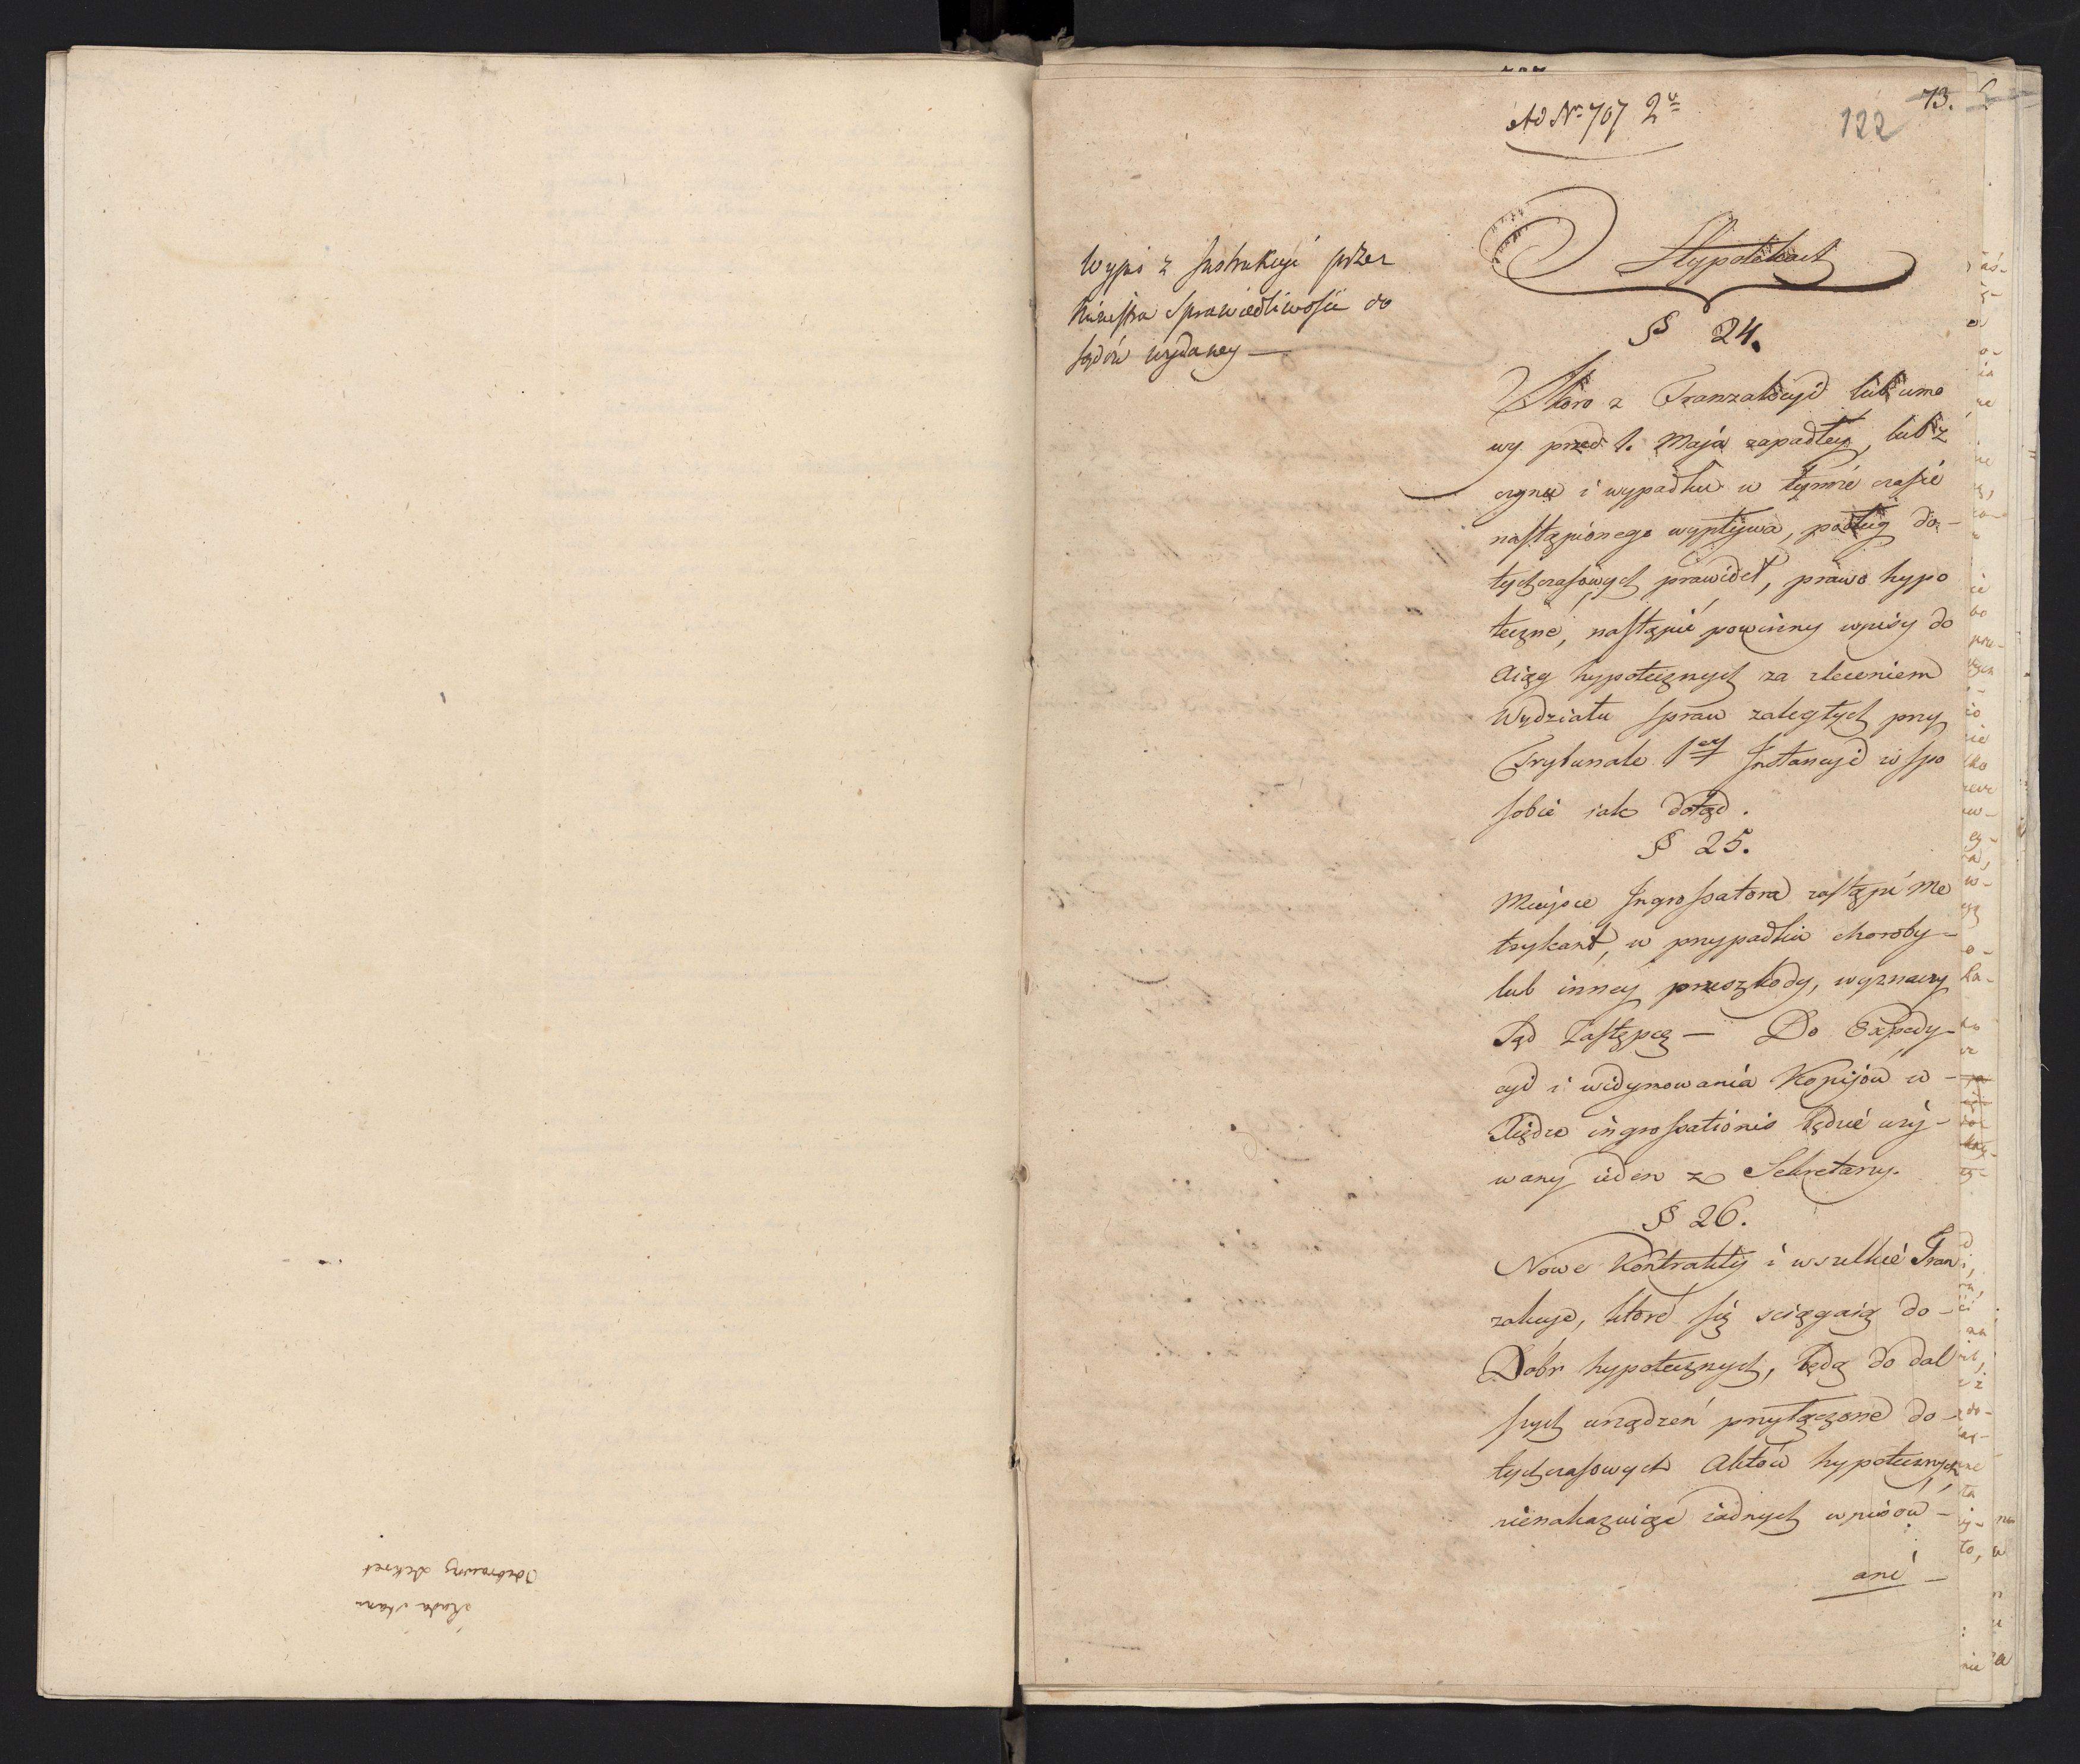 73.
122
Ad Nr 707 2
Wypis z Instrukcyi przez
Ministra Sprawiedliwości do
sądów wydaney —
Hypotekach
§ 24.
Skoro z Tranzakcyi lub umo
wy przed 1. Maja zapadłey, lub z
czynu i wypadku w tymże czasie
nastąpionego wypływa, podług do-
tychczasowych prawideł, prawo hypo
teczne, nastąpić powinny wpisy do
Xiąg hypotecznych za zleceniem
Wydziału spraw zaległych przy
Trybunale 1ey Instancyi w spo
sobie iak dotąd.
§ 25.
Mieysce Ingrossatora zastąpi Me
trykant, w przypadku choroby-
lub inney przeszkody, wyznaczy
Sąd Zastępcę — Do Expedy-
cyi i widymowania Kopijów w -
Xiędze ingrossationis będzie uży-
wany ieden z Sekretarzy.
§ 26.
Nowe Kontrakty i wszelkie Tran
zakcye, które się ściągaią do -
Dóbr hypotecznych, będą do dal
szych urządzeń przyłączone do -
tychczasowych Aktów hypotecznych,
nienakazuiąc żadnych wpisów -
ani -
Rada Stanu
Odebrawszy dekret